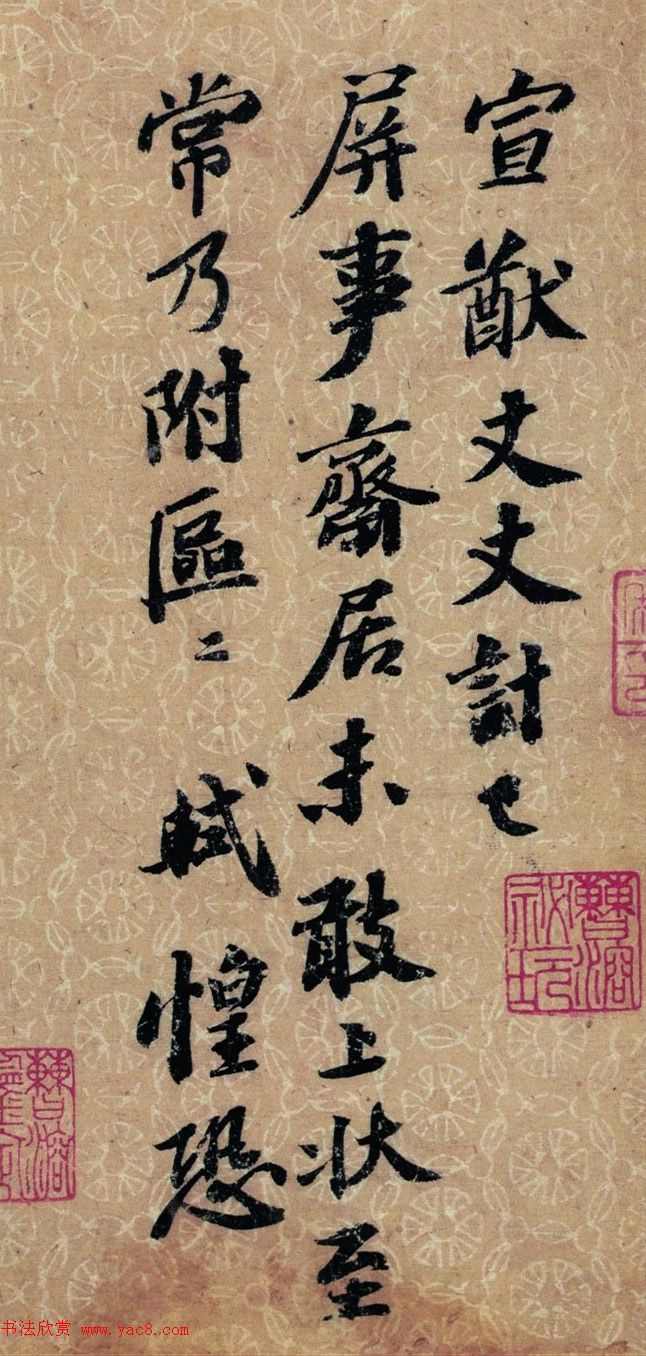 宣猷丈丈計已
屏事齋居未敢上狀至
常乃附區二 軾惶恐
书法欣赏 www.yac8.com